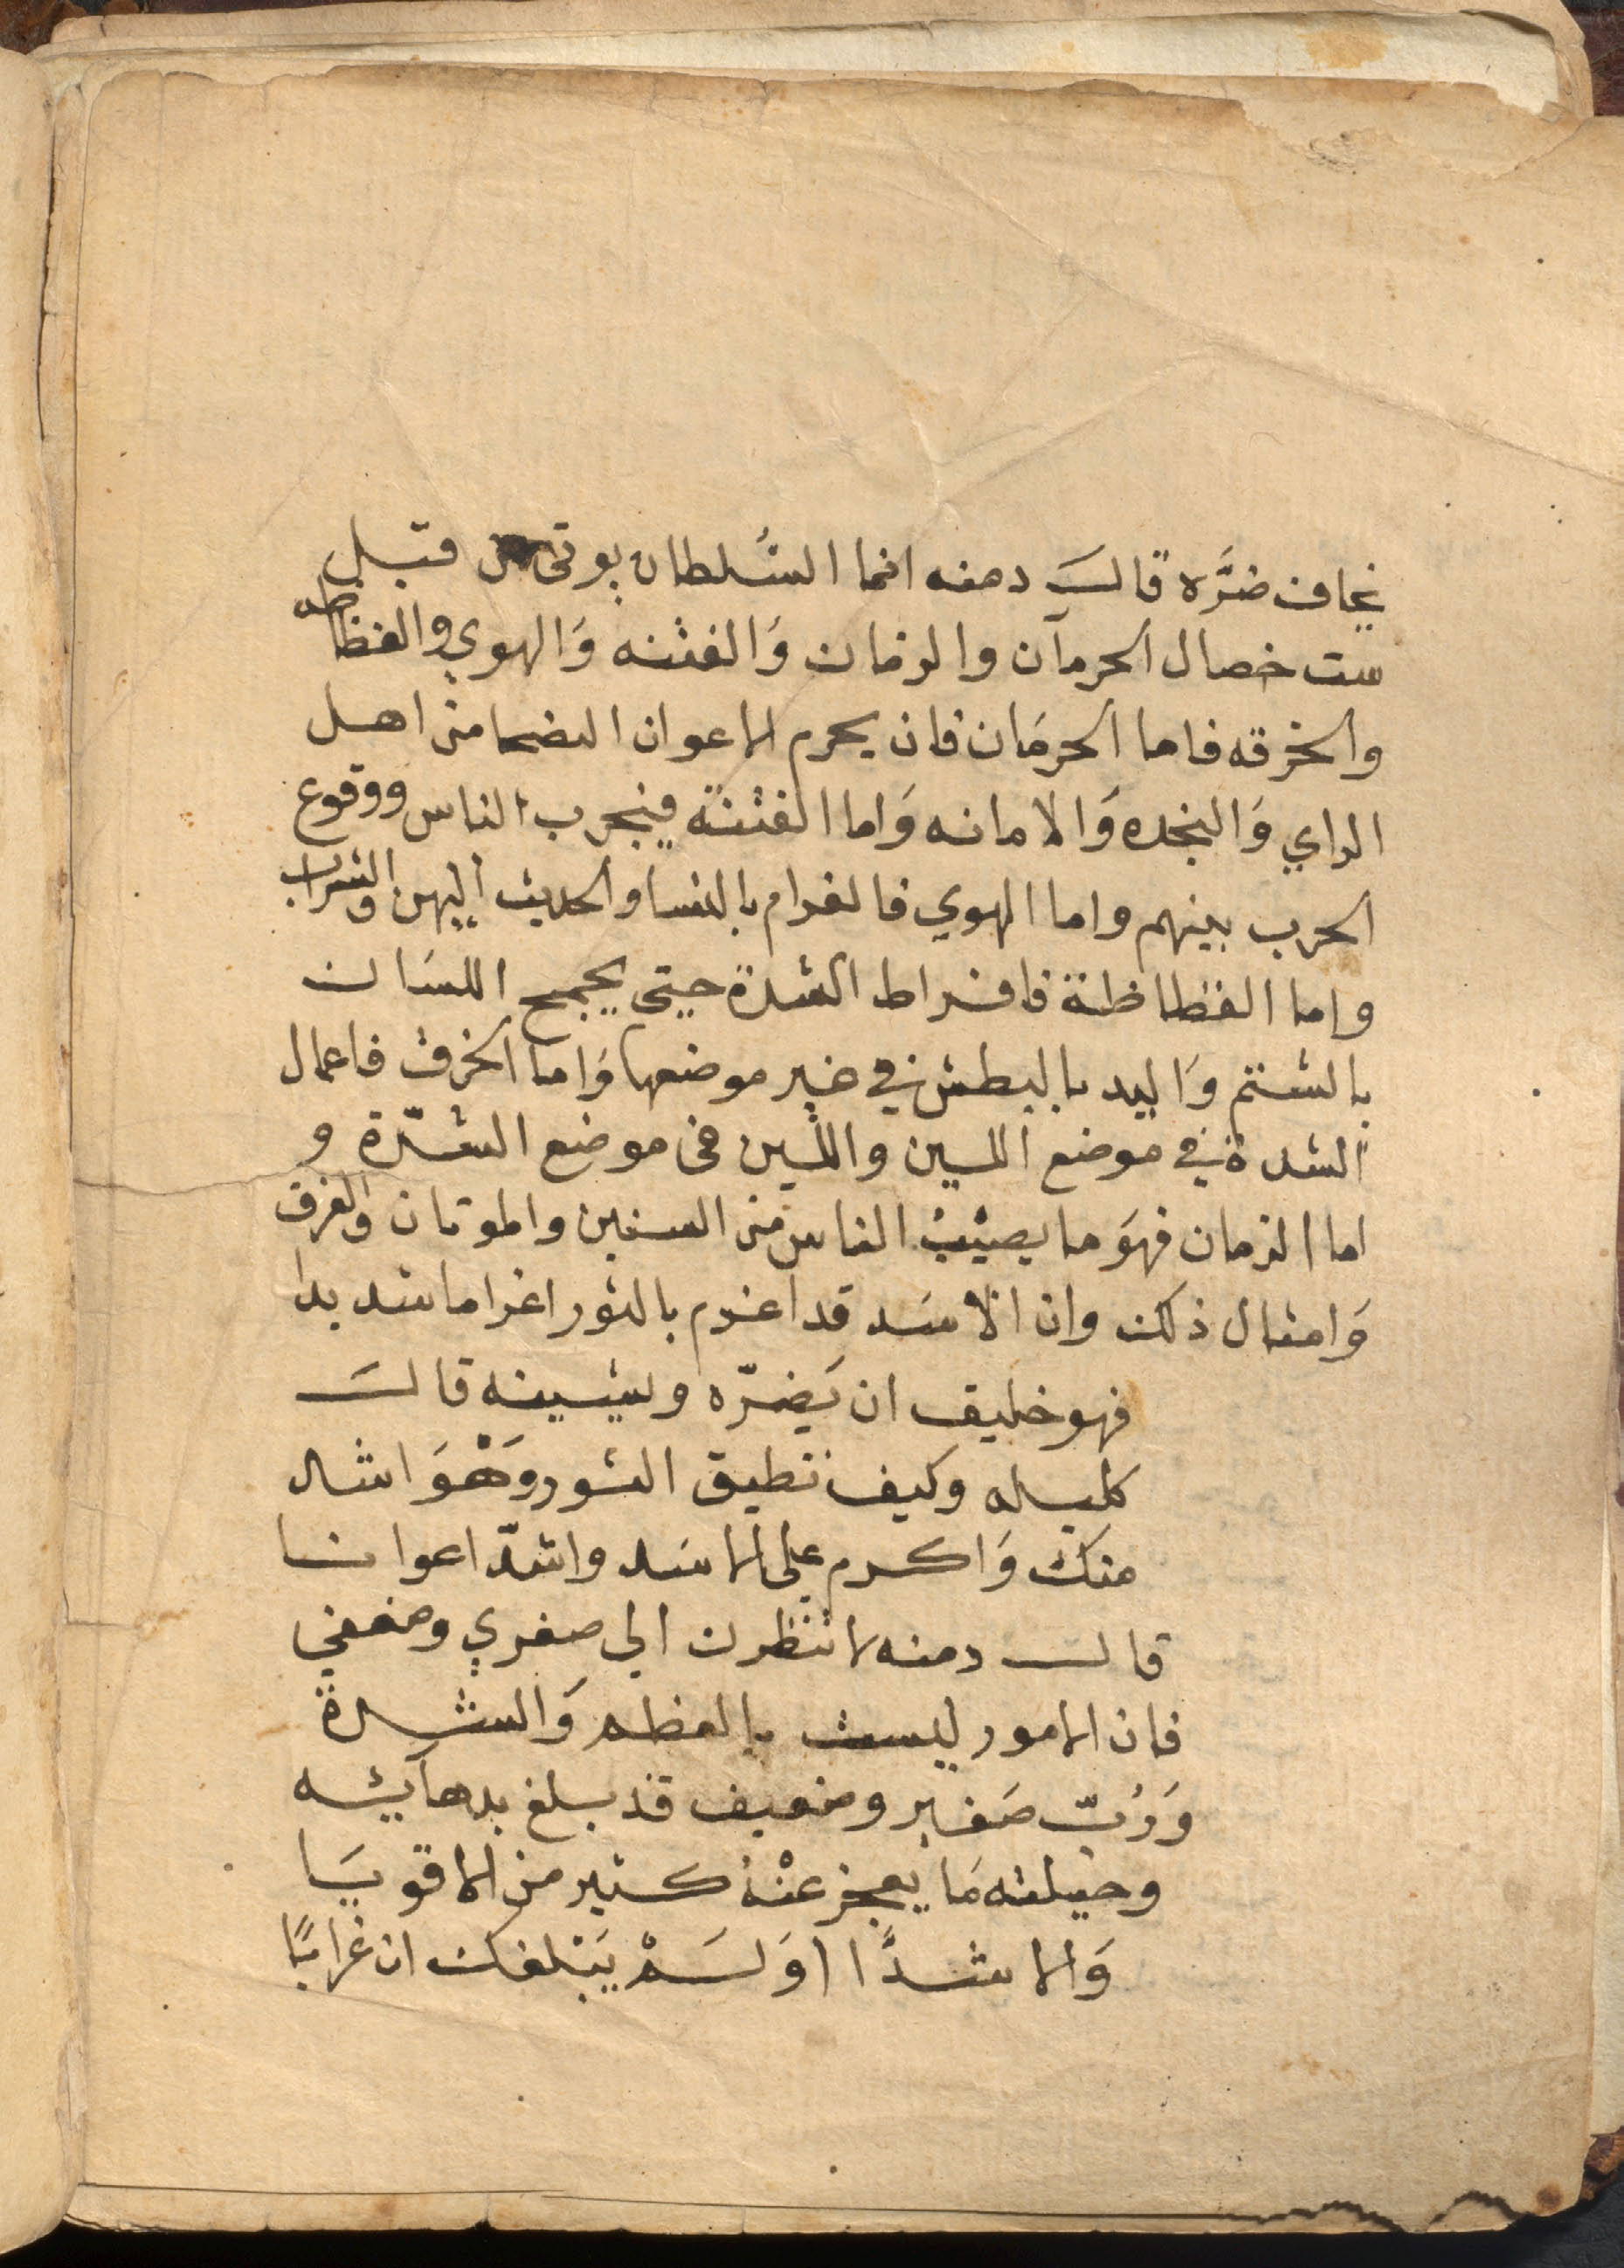 يخاف ضرَّه قالَـ دمنه انما السُلطان يوتى من قبل
ست خصال الحرمان والزمان وَالفتنه وَالهوي والفظاظه
والخرقه فاما الحرمَان فان يحرم الاعوان النصحا من اهل
الراي وَالنجده وَالامانه وَاما الفتنة فيتجرب الناس ووقوع
الحرب بينهم واما الهوي فالغرام بالنسا والحديث اليهن والشراب
واما الفظاظة فافراط الشدة حيتى يجمح اللسَان
بالشتم وَاليد بالبطش في غير موضعها وَاما الخرق فاعمال
الشدة في موضع اللين واللين فى موضع الشدّة و
اما الزمان فهوَ ما يصيْبُ الناس من السنين والموتان والغرق
وَامثال ذلك وان الاسَد قد اغرم بالثور اغراما شديدا
فهو خليق ان يَضرّه ويشينه قالَـ
كليله وكيف تطيق الثور وَهْوَ اشد
منك وَاكرم على الاسَد واشدّ اعوانا
قال دمنه لا تنظرن الي صغري وضعفي
فان الامور ليست بالعظم وَالشدة
وَرُبّ صَغير وضعيف قد بلغ بدهآيئه
وحيلته مَا يعجز عنْهُ كثير من الاقويَا
وَالاشدَّا اوَلَمْ يَبْلغك ان غرابًا